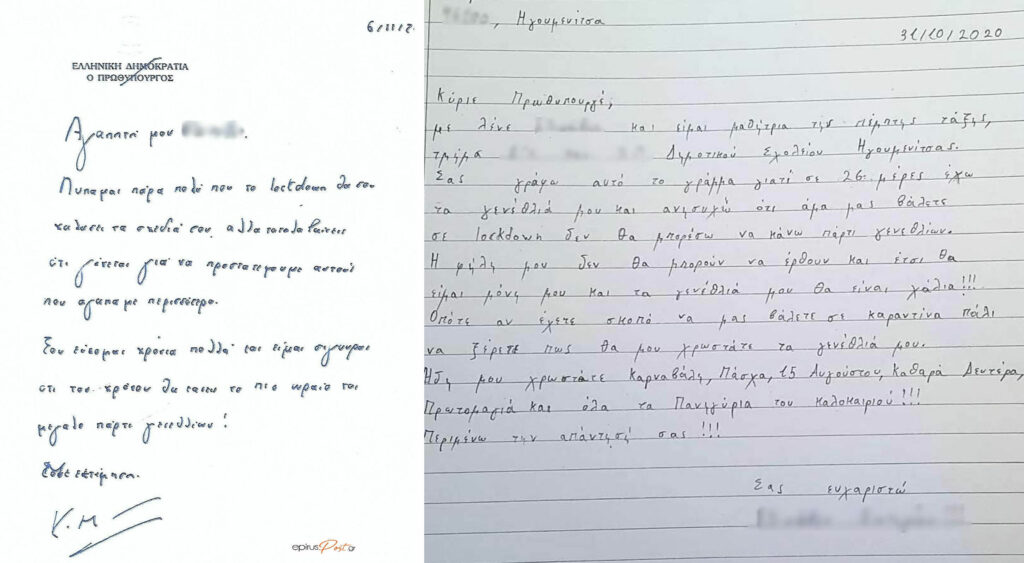 6/11/2
ΕΛΛΗΝΙΚΗ ΔΗΜΟΚΡΑΤΙΑ
Ο ΠΡΩΘΥΠΟΥΡΓΟΣ
Αγαπητή μου
Λυπάμαι πάρα πολύ που το lockdown θα σου
χαλάσει τα σχέδιά σου, αλλά καταλαβαίνεις
ότι γίνεται για να προστατέψουμε αυτούς
που αγαπάμε περισσότερο.
Σου εύχομαι χρόνια πολλά και είμαι σίγουρος
ότι του χρόνου θα κάνεις το πιο ωραίο και
μεγάλο πάρτι γενεθλίων!
Με εκτίμηση.
Κ.Μ
epirusPost.gr
, Ηγουμενίτσα
31/10/2020
Κύριε Πρωθυπουργέ,
με λένε και είμαι μαθήτρια της πέμπτης τάξης,
τμήμα Δημοτικού Σχολείου Ηγουμενίτσας.
Σας γράφω αυτό το γράμμα γιατί σε 26 μέρες έχω
τα γενέθλιά μου και ανησυχώ ότι άμα μας βάλετε
σε lockdown δεν θα μπορέσω να κάνω πάρτι γενεθλίων.
Η φίλη μου δεν θα μπορούν να έρθουν και έτσι θα
είμαι μόνη μου και τα γενέθλιά μου θα είναι χάλια!!!
Οπότε αν έχετε σκοπό να μας βάλετε σε καραντίνα πάλι
να ξέρετε πως θα μου χρωστάτε τα γενέθλιά μου.
Ήδη μου χρωστάτε Καρναβάλι, Πάσχα, 15 Αυγούστου, Καθαρά Δευτέρα,
Πρωτομαγιά και όλα τα Πανηγύρια του καλοκαιριού!!!
Περιμένω την απάντησή σας!!!
Σας ευχαριστώ